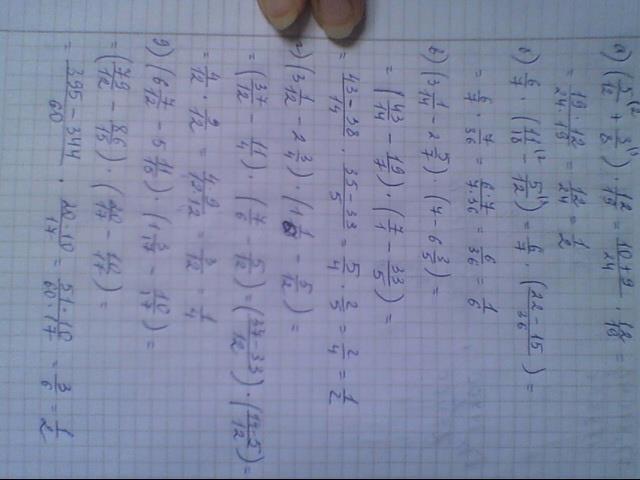 а) (5/12 + 3/8) · 12/19 = (10+9)/24 · 12/19 =
= (19 · 12)/(24 · 19) = 12/24 = 1/2
б) 6/7 · (11/18 - 5/12) = 6/7 · ((22-15)/36) =
= 6/7 · 7/36 = (6·7)/(7·36) = 6/36 = 1/6
в) (3 1/14 - 2 5/7) · (7 - 6 3/5) =
= (43/14 - 19/7) · (7/1 - 33/5) =
= (43-38)/14 · (35-33)/5 = 5/4 · 2/5 = 2/4 = 1/2
г) (3 1/12 - 2 3/4) · (1 1/6 - 5/12) =
= (37/12 - 11/4) · (7/6 - 5/12) = ((37-33)/12) · ((14-5)/12) =
= 4/12 · 9/12 = (4·9)/(12·12) = 3/12 = 1/4
д) (6 7/12 - 5 11/15) · (1 3/17 - 10/17) =
= (79/12 - 86/15) · (20/17 - 10/17) =
= (395-344)/60 · (20-10)/17 = (51·10)/(60·17) = 3/6 = 1/2